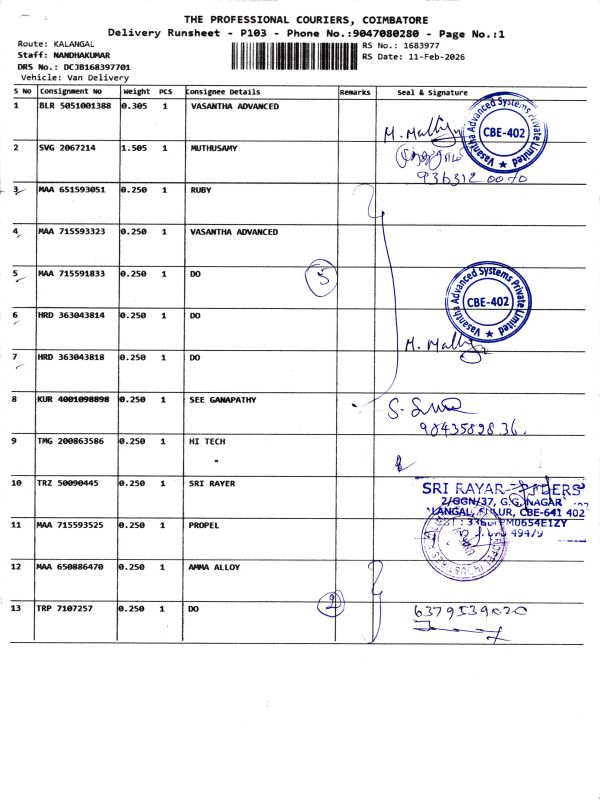 THE PROFESSIONAL COURIERS, COIMBATORE
Delivery Runsheet - P103 - Phone No.:9047080280 - Page No.:1
Route: KALANGAL
RS No.: 1683977
Staff: NANDHAKUMAR
RS Date: 11-Feb-2026
DRS No.: DCJB168397701
Vehicle: Van Delivery
S No Consignment No Weight PCS Consignee Details Remarks Seal & Signature
1 BLR 5051001388 0.305 1 VASANTHA ADVANCED
Vasantha Advanced Systems Private Limited
CBE-402
M. Mally
2 SVG 2067214 1.505 1 MUTHUSAMY
3 MAA 651593051 0.250 1 RUBY
4 MAA 715593323 0.250 1 VASANTHA ADVANCED
5 MAA 715591833 0.250 1 DO
5
Vasantha Advanced Systems Private Limited
CBE-402
6 HRD 363043814 0.250 1 DO
M. Mally
7 HRD 363043818 0.250 1 DO
8 KUR 4001098898 0.250 1 SEE GANAPATHY
9043582836.
9 TMG 200863586 0.250 1 HI TECH
"
10 TRZ 50090445 0.250 1 SRI RAYER
SRI RAYAR
2/GGN/37, G.G. NAGAR
CBE-641 402
11 MAA 715593525 0.250 1 PROPEL
49479
12 MAA 650886470 0.250 1 AMMA ALLOY
13 TRP 7107257 0.250 1 DO
2
6379539020